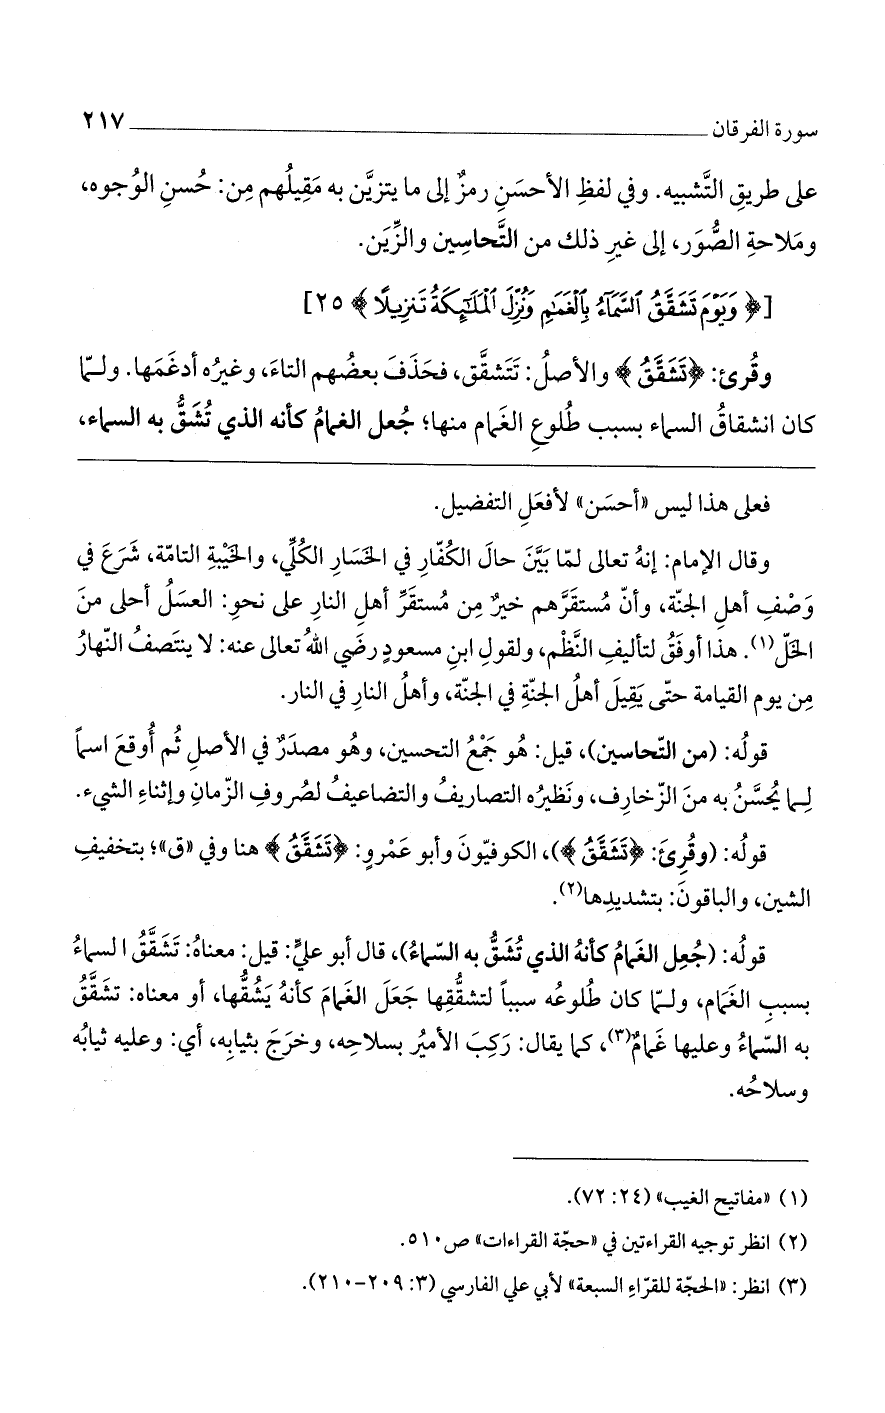 سورة الفرقان ٢١٧
على طريقِ التَّشبيه. وفي لفظِ الأحسَنِ رمزٌ إلى ما يتزيَّن به مَقِيلُهم مِن: حُسنِ الوُجوه،
ومَلاحةِ الصُّوَر، إلى غيرِ ذلك من التَّحاسِين والزِّيَن.
[﴿ وَيَوْمَ تَشَقَّقُ ٱلسَّمَآءُ بِٱلْغَمَـٰمِ وَنُزِّلَ ٱلْمَلَـٰٓئِكَةُ تَنزِيلًا ﴾ ٢٥]
وقُرئ: ﴿تَشَقَّقُ﴾ والأصلُ: تَتَشقَّق، فحَذَفَ بعضُهم التاءَ، وغيرُه أدغَمَها. ولـمّا
كان انشقاقُ السماء بسبب طُلوعِ الغَمام منها؛ جُعل الغمامُ كأنه الذي تُشَقُّ به السماء،
فعلى هذا ليس «أحسَن» لأفعَلِ التفضيل.
وقال الإمام: إنهُ تعالى لمّا بَيَّنَ حالَ الكُفّارِ في الخَسَارِ الكُلِّي، والخَيْبةِ التامّة، شَرَعَ في
وَصْفِ أهلِ الجنّة، وأنّ مُستقَرَّهم خيرٌ مِن مُستقَرِّ أهلِ النارِ على نحوِ: العسَلُ أحلى منَ
الخَلّ(١). هذا أوفَقُ لتأليفِ النَّظْم، ولقولِ ابنِ مسعودٍ رضَي اللهُ تعالى عنه: لا ينتَصفُ النّهارُ
مِن يوم القيامة حتّى يَقِيلَ أهلُ الجنّةِ في الجنّة، وأهلُ النارِ في النار.
قولُه: (من التّحاسين)، قيل: هُو جَمْعُ التحسين، وهُو مصدَرٌ في الأصلِ ثُم أُوقعَ اسماً
لِـما يُحسَّنُ به منَ الزّخارِف، ونَظيرُه التصاريفُ والتضاعيفُ لصُروفِ الزّمانِ وإثناءِ الشيء.
قولُه: (وقُرِئَ: ﴿تَشَقَّقُ﴾)، الكوفيّونَ وأبو عَمْرٍو: ﴿تَشَقَّقُ﴾ هنا وفي «ق»؛ بتخفيفِ
الشين، والباقونَ: بتشديدِها(٢).
قولُه: (جُعِل الغَمامُ كأنهُ الذي تُشَقُّ به السّماءُ)، قال أبو عليٍّ: قيل: معناهُ: تَشَقَّقُ السماءُ
بسببِ الغَمام، ولـمّا كان طُلوعُه سبباً لتشقُّقِها جَعَلَ الغَمامَ كأنهُ يَشُقُّها، أو معناه: تشقَّقُ
به السّماءُ وعليها غَمامٌ(٣)، كما يقال: رَكِبَ الأميرُ بسلاحِه، وخرَجَ بثيابِه، أي: وعليه ثيابُه
وسلاحُه.
(١) «مفاتيح الغيب» (٢٤: ٧٢).
(٢) انظر توجيه القراءتين في «حجّة القراءات» ص٥١٠.
(٣) انظر: «الحجّة للقرّاءِ السبعة» لأبي علي الفارسي (٣: ٢٠٩-٢١٠).